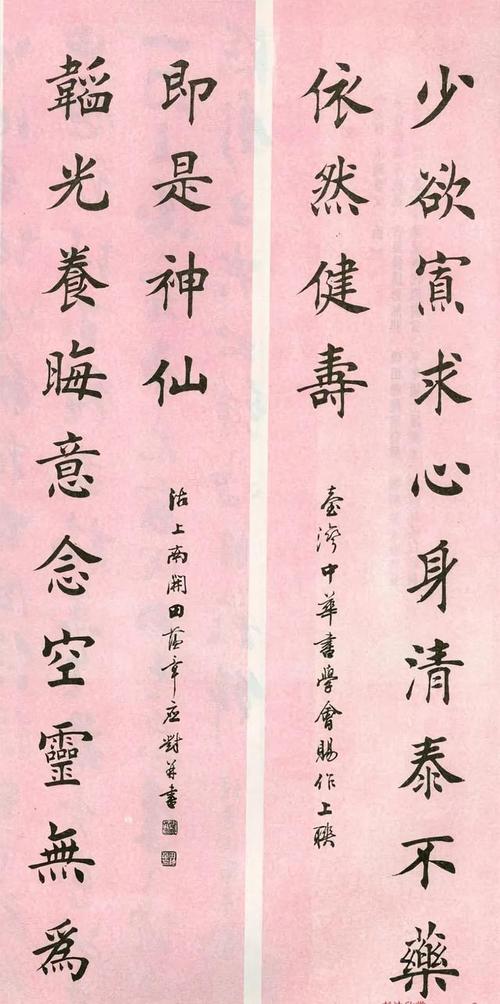 少欲寡求心身清泰不藥
依然健壽
臺灣中華書學會賜作上聯
韜光養晦意念空靈無為
即是神仙
沽上南開田蘊章应對并書